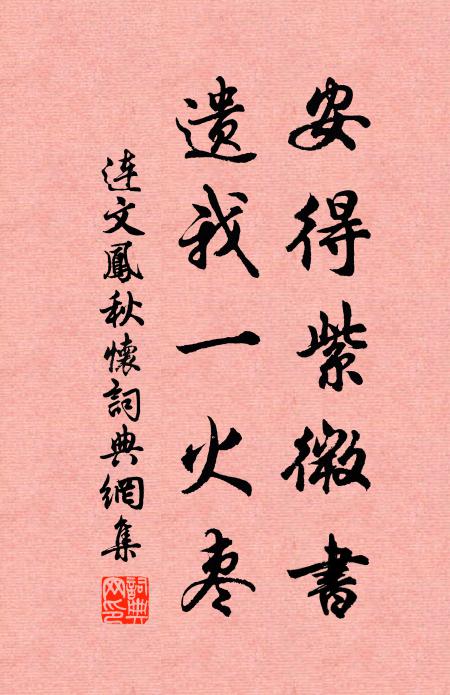 安得紫微書
遺我一火枣
連文鳳秋懷詞典網集
詞典網印